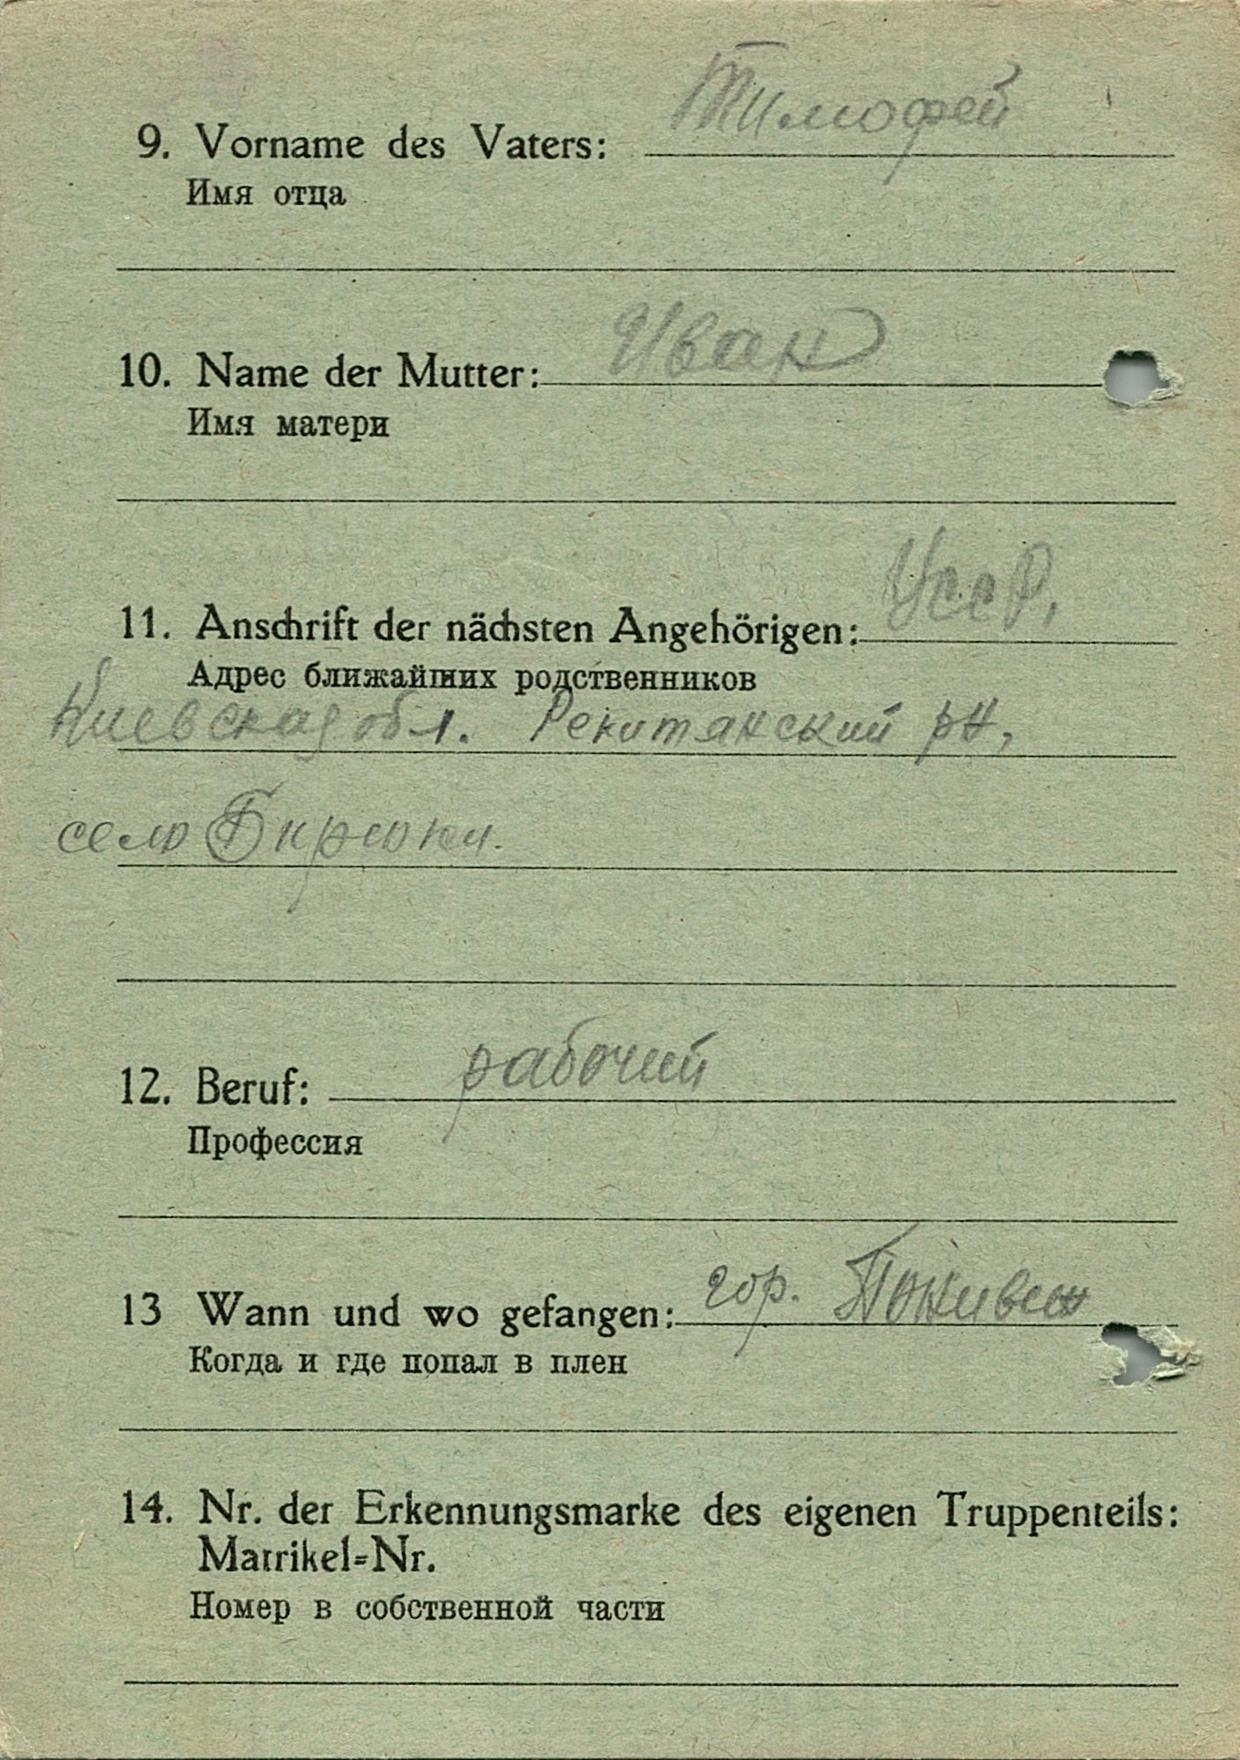 9. Vorname des Vaters: Тимофей
Имя отца
10. Name der Mutter: Иван
Имя матери
11. Anschrift der nächsten Angehörigen: УССР,
Адрес ближайших родственников
Киевская обл. Рекитянский рн,
село Бирюки.
12. Beruf: рабочий
Профессия
13 Wann und wo gefangen: гор.
Когда и где попал в плен
14. Nr. der Erkennungsmarke des eigenen Truppenteils:
Matrikel=Nr.
Номер в собственной части